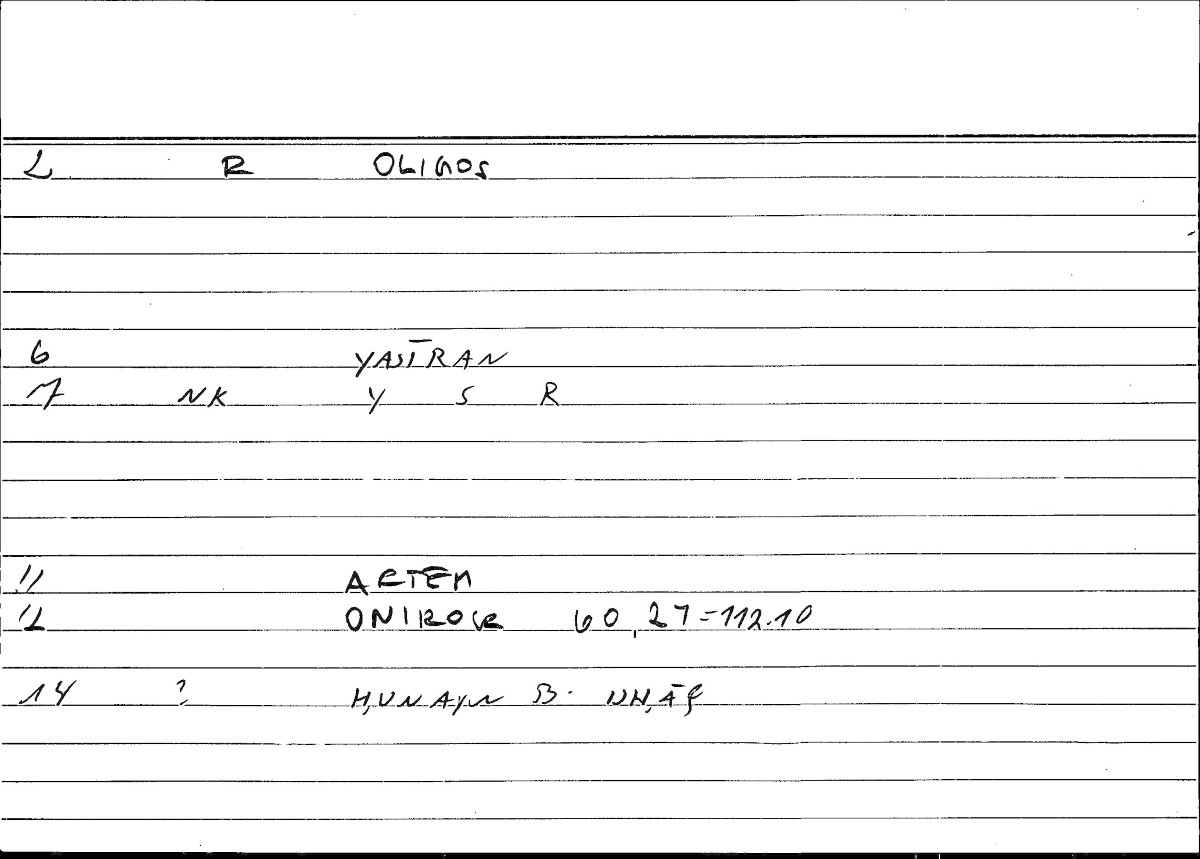 2 R OLIGOS
6 YASĪRAN
7 NK Y S R
11 ARTEM
12 ONIROCR 60,27=112.10
14 ? H,UNAYN B. ISH,ĀQ